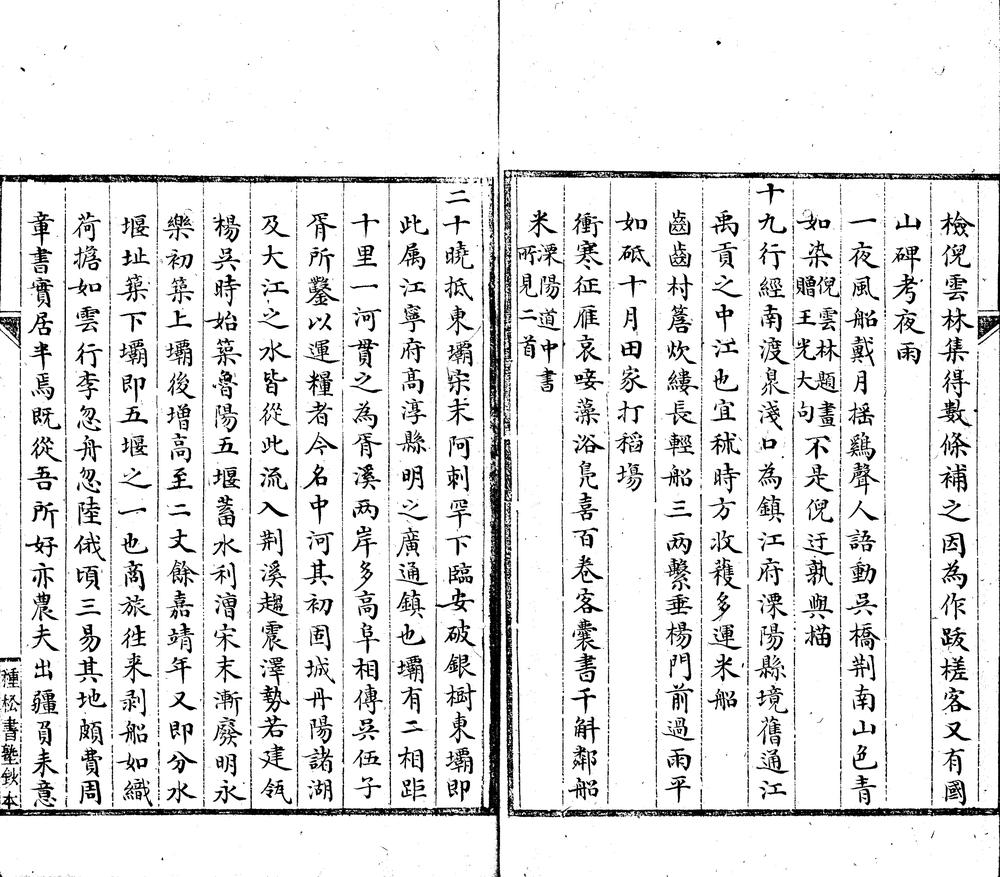 檢倪雲林集得數條補之因為作跋槎客又有國
山碑考夜雨
一夜風船戴月搖鷄聲人語動吳橋荆南山色青
如染倪雲林題畫贈王光大句不是倪迂孰與描
十九行經南渡泉淺口為鎮江府溧陽縣境舊通江
禹貢之中江也宜秫時方收穫多運米船
齒齒村簷炊縷長輕船三兩繫垂楊門前過雨平
如砥十月田家打稻場
衝寒征雁哀唼藻浴鳧喜百卷客囊書千斛鄰船
米溧陽道中書所見二首
二十曉抵東壩宋末阿刺罕下臨安破銀樹東壩即
此属江寧府高淳縣明之廣通鎮也壩有二相距
十里一河貫之為胥溪两岸多高阜相傳吳伍子
胥所鑿以運糧者今名中河其初固城丹陽諸湖
及大江之水皆從此流入荆溪趨震澤勢若建瓴
楊吳時始築魯陽五堰蓄水利漕宋末漸廢明永
樂初築上壩後增高至二丈餘嘉靖年又即分水
堰址築下壩即五堰之一也商旅往来剥船如織
荷擔如雲行李忽舟忽陸俄頃三易其地頗費周
章書實居半焉既從吾所好亦農夫出疆負耒意
種松書塾鈔本